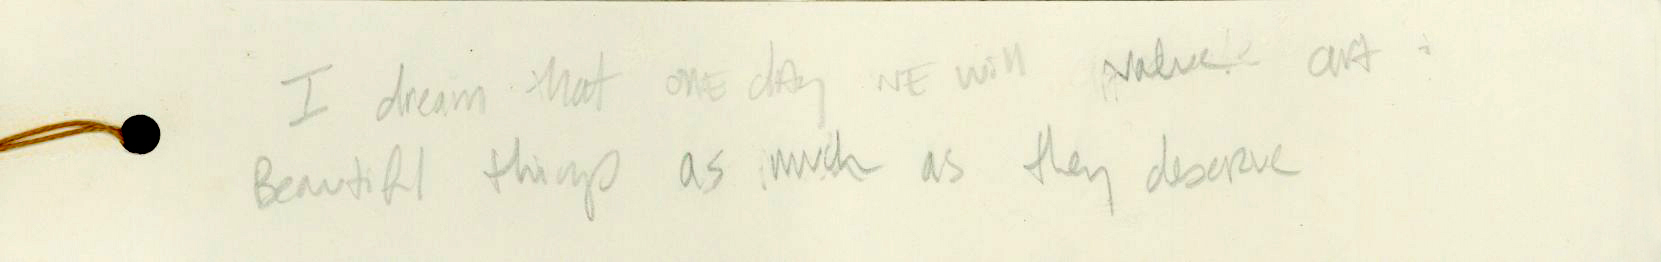 I dream that ONE dAy WE will value art +
Beautiful things as much as they deserve